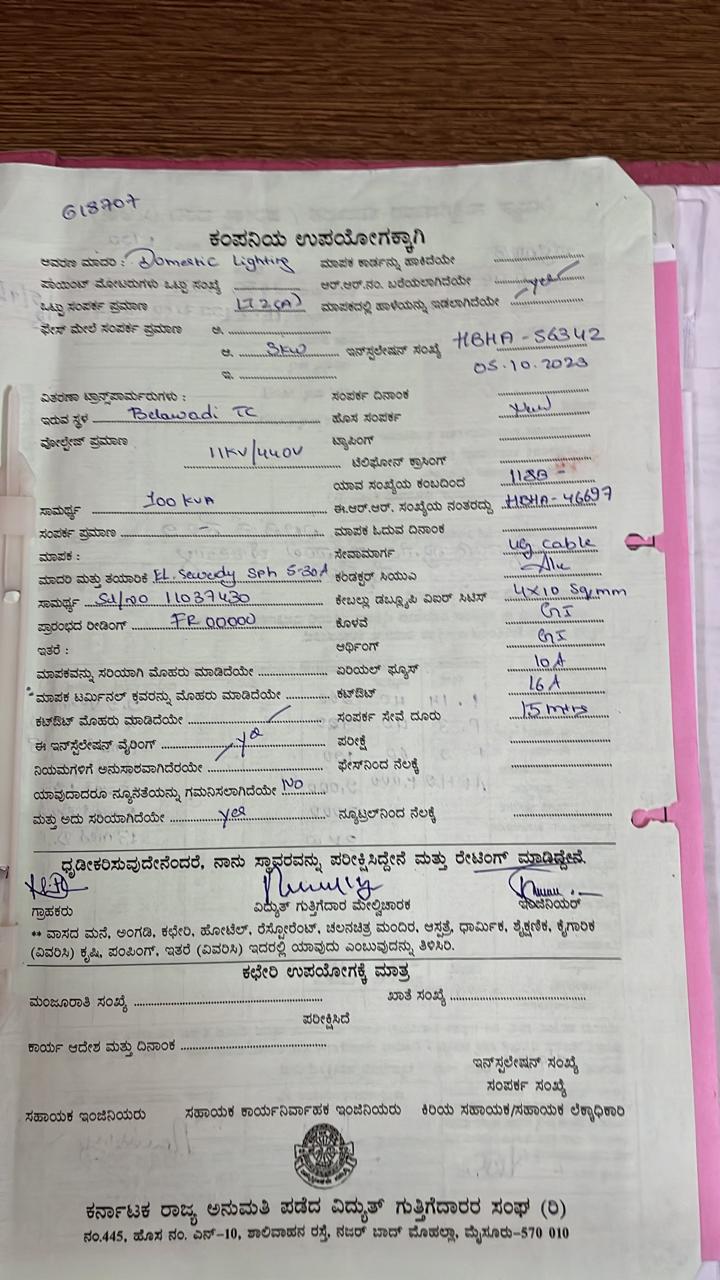 618707
ಕಂಪನಿಯ ಉಪಯೋಗಕ್ಕಾಗಿ
ಆವರಣ ಮಾದರಿ : Domestic Lighting ಮಾಪಕ ಕಾರ್ಡನ್ನು ಹಾಕಿದೆಯೇ
ಪಾಯಿಂಟ್ ಮೋಟರುಗಳು ಒಟ್ಟು ಸಂಖ್ಯೆ ಆರ್.ಆರ್.ನಂ. ಬರೆಯಲಾಗಿದೆಯೇ
ಒಟ್ಟು ಸಂಪರ್ಕ ಪ್ರಮಾಣ LT2(A) ಮಾಪಕದಲ್ಲಿ ಹಾಳೆಯನ್ನು ಇಡಲಾಗಿದೆಯೇ yes
ಫೇಸ್ ಮೇಲೆ ಸಂಪರ್ಕ ಪ್ರಮಾಣ ಅ.
ಆ. 3KW ಇನ್‌ಸ್ಟಲೇಷನ್ ಸಂಖ್ಯೆ HBHA-56342
ಇ. 05.10.2023
ವಿತರಣಾ ಟ್ರಾನ್ಸ್‌ಪಾರ್ಮರುಗಳು : ಸಂಪರ್ಕ ದಿನಾಂಕ
ಇರುವ ಸ್ಥಳ Belawadi TC ಹೊಸ ಸಂಪರ್ಕ New
ವೋಲ್ಟೇಜ್ ಪ್ರಮಾಣ 11KV/440V ಟ್ಯಾಪಿಂಗ್
ಟೆಲಿಫೋನ್ ಕ್ರಾಸಿಂಗ್
ಯಾವ ಸಂಖ್ಯೆಯ ಕಂಬದಿಂದ
ಸಾಮರ್ಥ್ಯ 100 KVA ಈ.ಆರ್.ಆರ್. ಸಂಖ್ಯೆಯ ನಂತರದ್ದು HBHA-46697
ಸಂಪರ್ಕ ಪ್ರಮಾಣ - ಮಾಪಕ ಓದುವ ದಿನಾಂಕ
ಮಾಪಕ : ಸೇವಾಮಾರ್ಗ ug cable
ಮಾದರಿ ಮತ್ತು ತಯಾರಿಕೆ EL. Sewedy Sph 5-30A ಕಂಡಕ್ಟರ್ ಸಿಯುಎ Alu
ಸಾಮರ್ಥ್ಯ Sl/no 11037430 ಕೇಬಲ್ಲು ಡಬ್ಲ್ಯೂಪಿ ಎಐರ್ ಸಿಟಿಸ್ 4x10 Sqmm
ಪ್ರಾರಂಭದ ರೀಡಿಂಗ್ FR 00000 ಕೊಳವೆ GI
ಇತರೆ : ಆರ್ಥಿಂಗ್ GI
ಮಾಪಕವನ್ನು ಸರಿಯಾಗಿ ಮೊಹರು ಮಾಡಿದೆಯೇ ಏರಿಯಲ್ ಫ್ಯೂಸ್ 10A
ಮಾಪಕ ಟರ್ಮಿನಲ್ ಕ್ವರನ್ನು ಮೊಹರು ಮಾಡಿದೆಯೇ ಕಟ್‌ಔಟ್ 16A
ಕಟ್‌ಔಟ್ ಮೊಹರು ಮಾಡಿದೆಯೇ ಸಂಪರ್ಕ ಸೇವೆ ದೂರು 15mtrs
ಈ ಇನ್‌ಸ್ಟೆಲೇಷನ್ ವೈರಿಂಗ್ yes ಪರೀಕ್ಷೆ
ನಿಯಮಗಳಿಗೆ ಅನುಸಾರವಾಗಿದೆರಯೇ ಫೇಸ್‌ನಿಂದ ನೆಲಕ್ಕೆ
ಯಾವುದಾದರೂ ನ್ಯೂನತೆಯನ್ನು ಗಮನಿಸಲಾಗಿದೆಯೇ NO
ಮತ್ತು ಅದು ಸರಿಯಾಗಿದೆಯೇ yes ನ್ಯೂಟ್ರಲ್‌ನಿಂದ ನೆಲಕ್ಕೆ
ಧೃಡೀಕರಿಸುವುದೇನೆಂದರೆ, ನಾನು ಸ್ಥಾವರವನ್ನು ಪರೀಕ್ಷಿಸಿದ್ದೇನೆ ಮತ್ತು ರೇಟಿಂಗ್ ಮಾಡಿದ್ದೇನೆ.
ಗ್ರಾಹಕರು ವಿದ್ಯುತ್ ಗುತ್ತಿಗೆದಾರ ಮೇಲ್ವಿಚಾರಕ ಇಂಜಿನಿಯರ್
** ವಾಸದ ಮನೆ, ಅಂಗಡಿ, ಕಛೇರಿ, ಹೋಟೆಲ್, ರೆಸ್ಟೋರೆಂಟ್, ಚಲನಚಿತ್ರ ಮಂದಿರ, ಆಸ್ಪತ್ರೆ, ಧಾರ್ಮಿಕ, ಶೈಕ್ಷಣಿಕ, ಕೈಗಾರಿಕ
(ವಿವರಿಸಿ) ಕೃಷಿ, ಪಂಪಿಂಗ್, ಇತರೆ (ವಿವರಿಸಿ) ಇದರಲ್ಲಿ ಯಾವುದು ಎಂಬುವುದನ್ನು ತಿಳಿಸಿರಿ.
ಕಛೇರಿ ಉಪಯೋಗಕ್ಕೆ ಮಾತ್ರ
ಮಂಜೂರಾತಿ ಸಂಖ್ಯೆ ಖಾತೆ ಸಂಖ್ಯೆ
ಪರೀಕ್ಷಿಸಿದೆ
ಕಾರ್ಯ ಆದೇಶ ಮತ್ತು ದಿನಾಂಕ
ಇನ್‌ಸ್ಟಲೇಷನ್ ಸಂಖ್ಯೆ
ಸಂಪರ್ಕ ಸಂಖ್ಯೆ
ಸಹಾಯಕ ಇಂಜಿನಿಯರು ಸಹಾಯಕ ಕಾರ್ಯನಿರ್ವಾಹಕ ಇಂಜಿನಿಯರು ಕಿರಿಯ ಸಹಾಯಕ/ಸಹಾಯಕ ಲೆಕ್ಕಾಧಿಕಾರಿ
ಕರ್ನಾಟಕ ರಾಜ್ಯ ಅನುಮತಿ ಪಡೆದ ವಿದ್ಯುತ್ ಗುತ್ತಿಗೆದಾರರ ಸಂಘ (ರಿ)
ನಂ.445, ಹೊಸ ನಂ. ಎನ್-10, ಶಾಲಿವಾಹನ ರಸ್ತೆ, ನಜರ್ ಬಾದ್ ಮೊಹಲ್ಲಾ, ಮೈಸೂರು-570 010